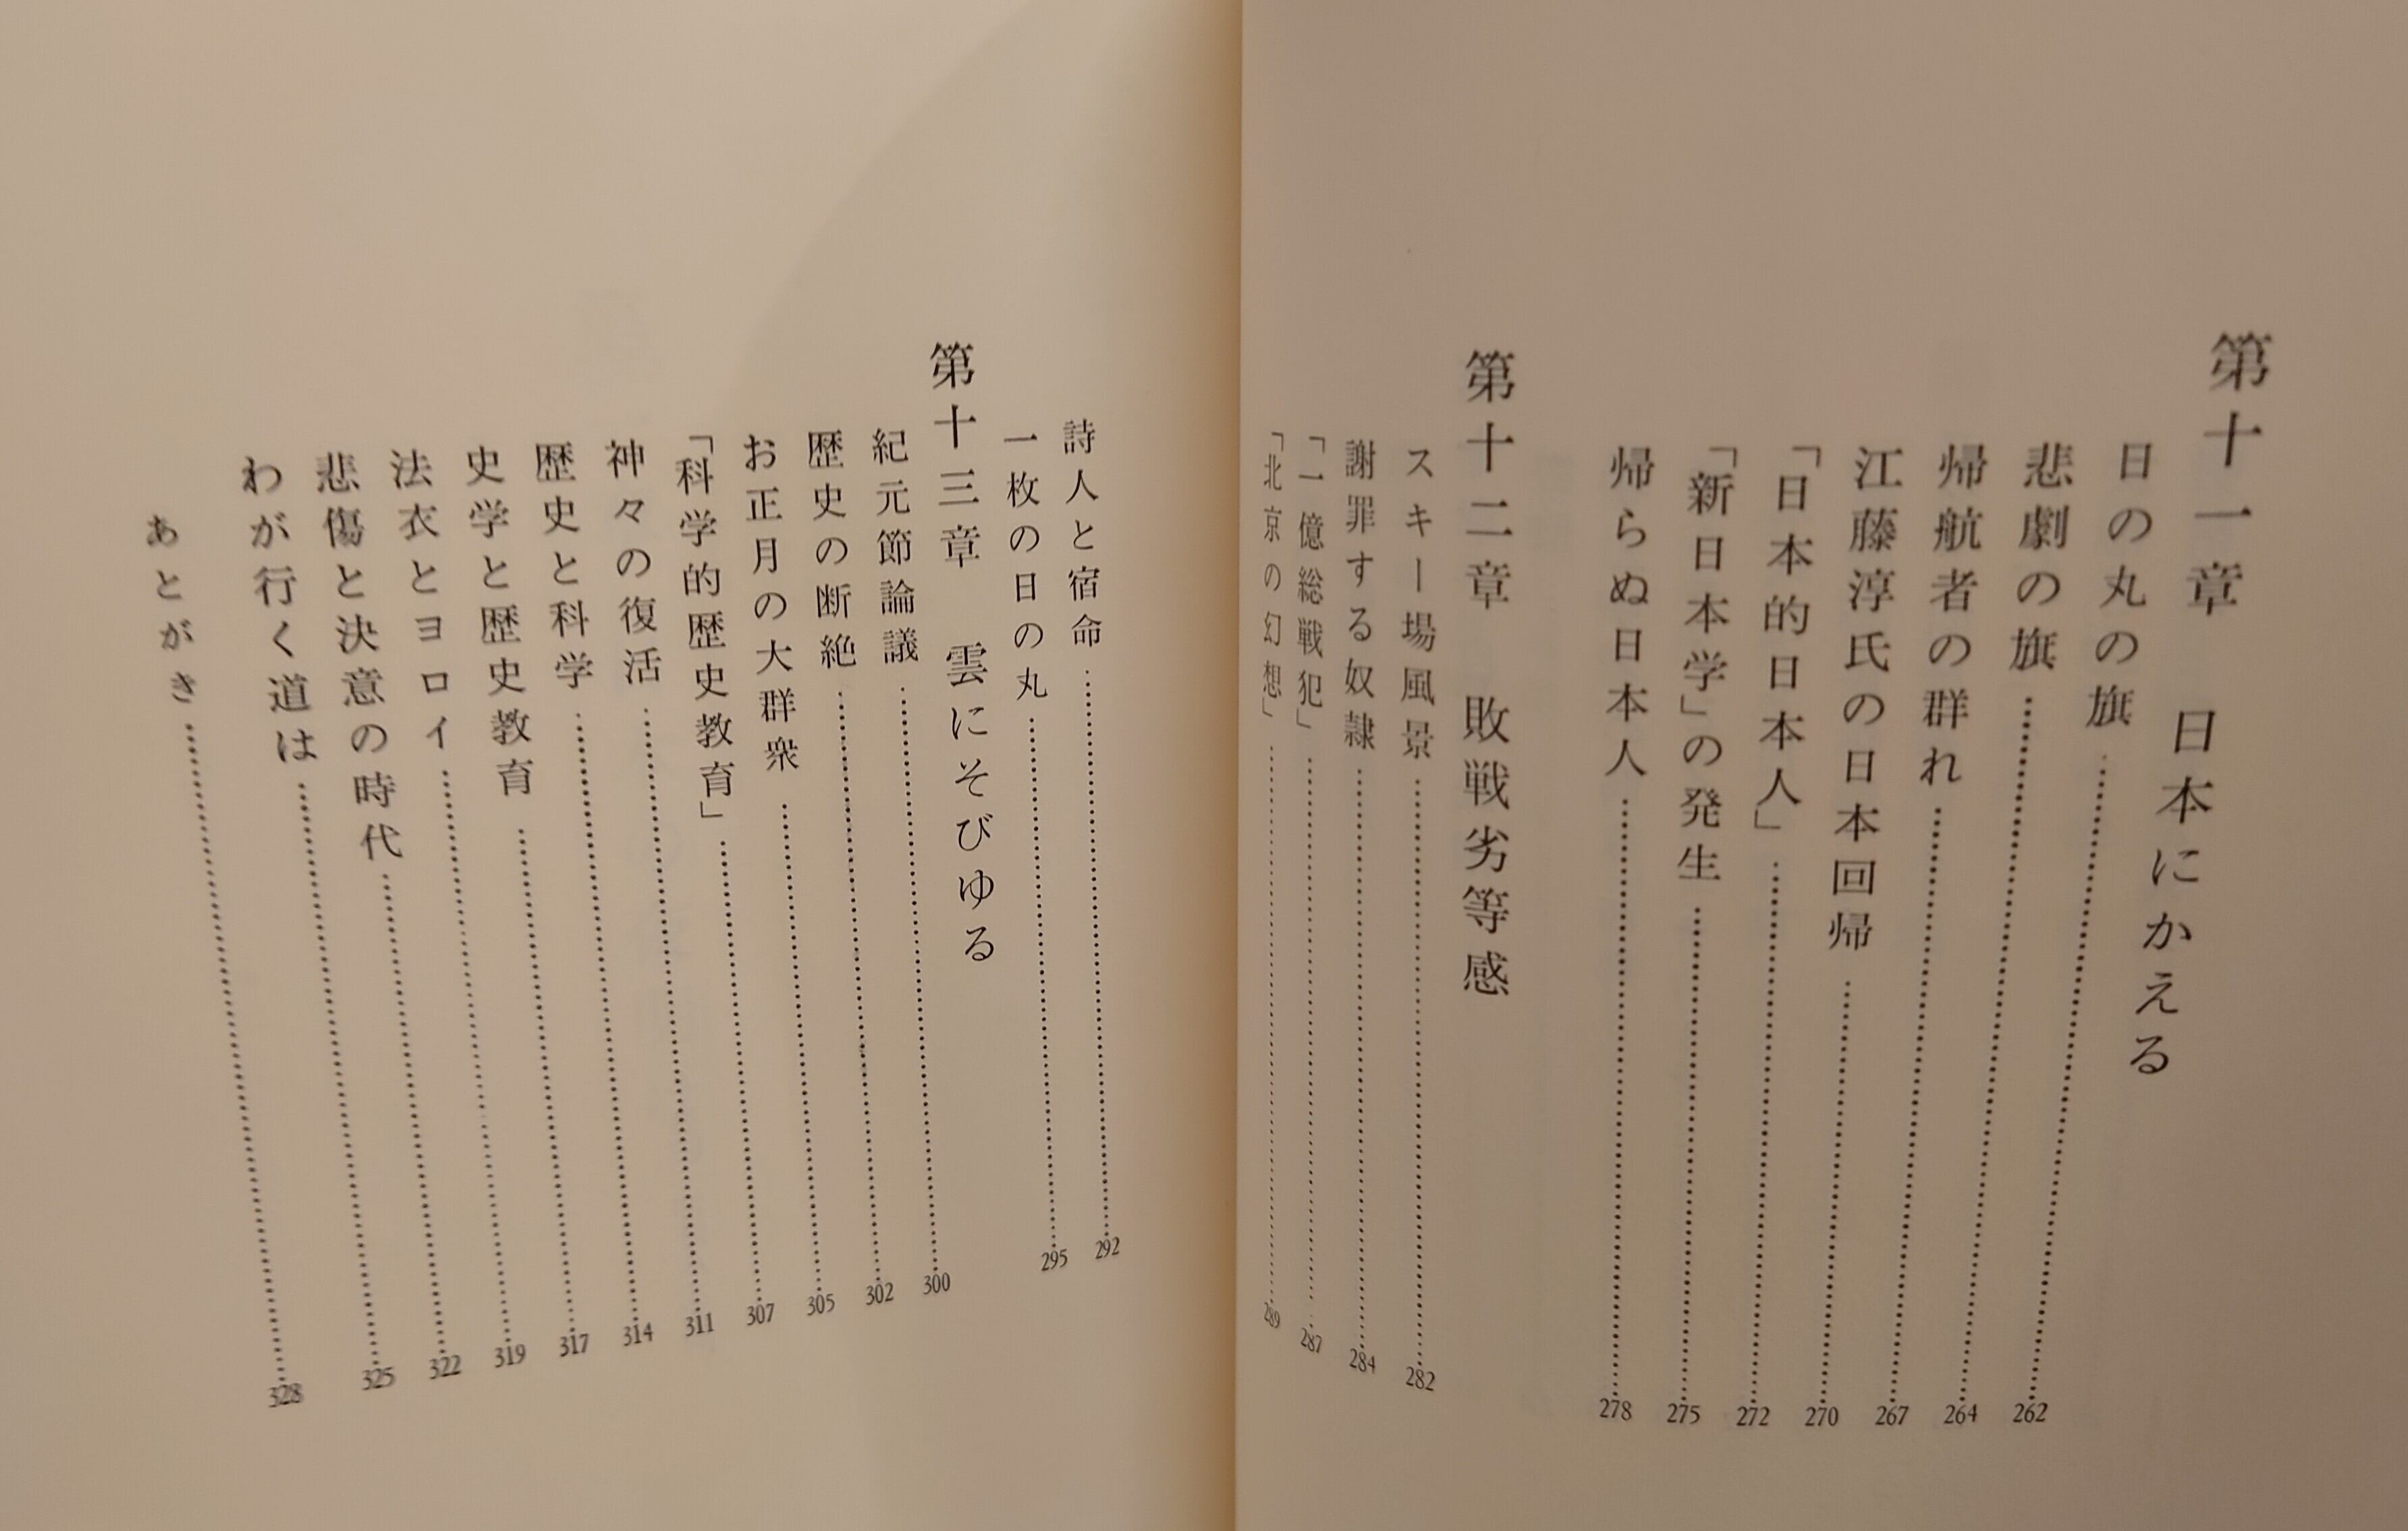 第十一章　日本にかえる
日の丸の旗…………262
悲劇の旗…………264
帰航者の群れ…………267
江藤淳氏の日本回帰…………270
「日本的日本人」…………272
「新日本学」の発生…………275
帰らぬ日本人…………278
第十二章　敗戦劣等感
スキー場風景…………282
謝罪する奴隷…………284
「一億総戦犯」…………287
「北京の幻想」…………289
詩人と宿命…………292
一枚の日の丸…………295
第十三章　雲にそびゆる
紀元節論議…………300
歴史の断絶…………302
お正月の大群衆…………305
「科学的歴史教育」…………307
神々の復活…………311
歴史と科学…………314
史学と歴史教育…………317
法衣とヨロイ…………319
悲傷と決意の時代…………322
わが行く道は…………325
あとがき…………328